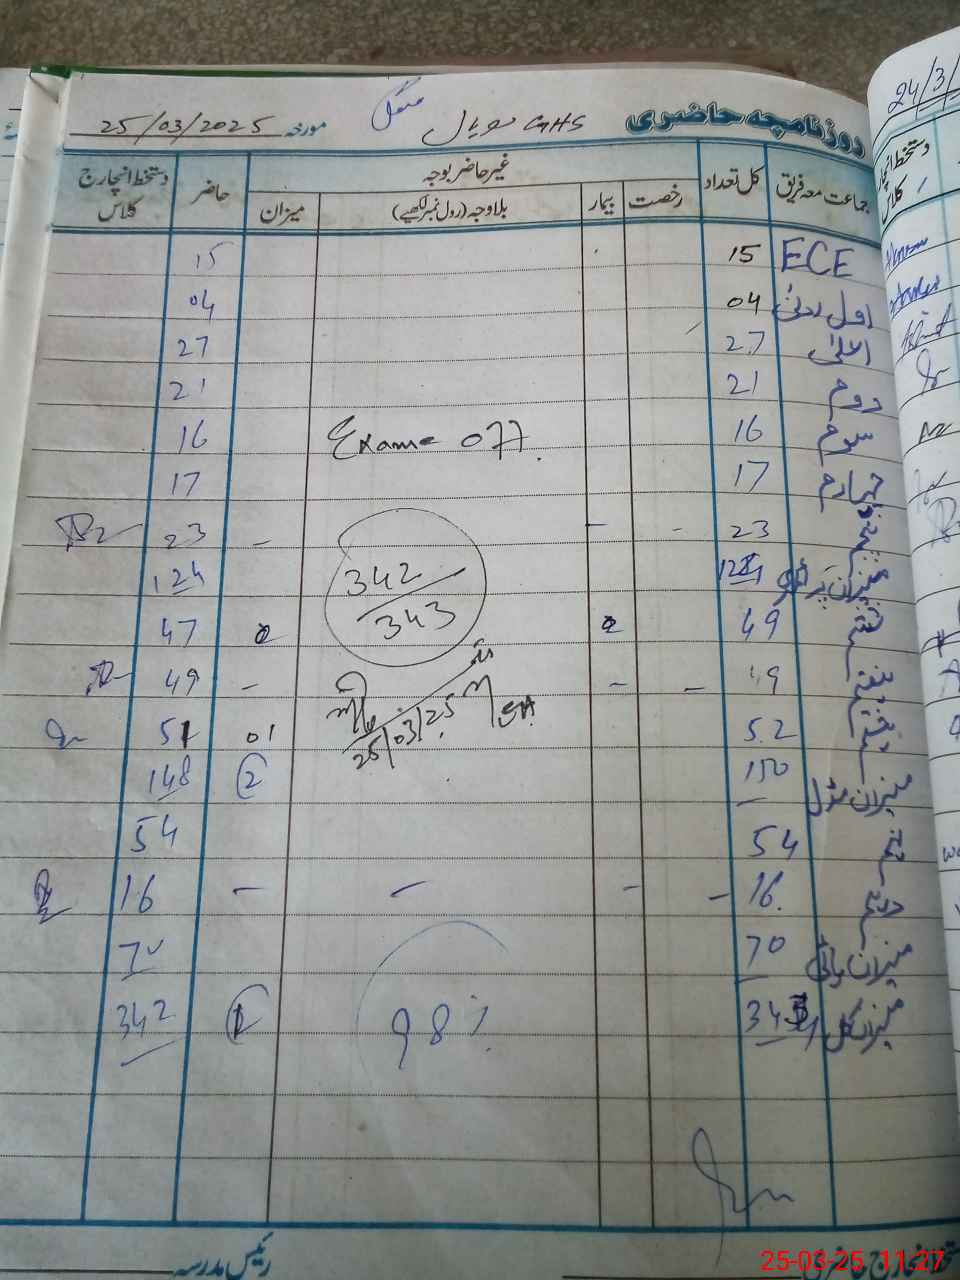 روزنامچہ حاضری GHS سویال منگل مورخہ 25/03/2025
24/3/
جماعت معہ فریق کل تعداد غیر حاضر بوجہ حاضر دستخط انچارج کلاس
رخصت بیمار بلاوجہ (رول نمبر لکھیے) میزان
دستخط انچارج کلاس
ECE 15 15
اول ادنیٰ 04 04
اعلیٰ 27 27
دوم 21 21
سوم 16 Exame off. 16
چہارم 17 17
پنجم 23 - - - 23
میزان پرائمری 124 342/343 124
ششم 49 2 2 47
ہفتم 49 - - - 49
ہشتم 52 25/03/25 01 51
میزان مڈل 150 2 148
نہم 54 54
دہم 16 - - - - 16
میزان ہائی 70 70
میزان کل 98% 342
رئیس مدرسہ
25-03-25 11:27